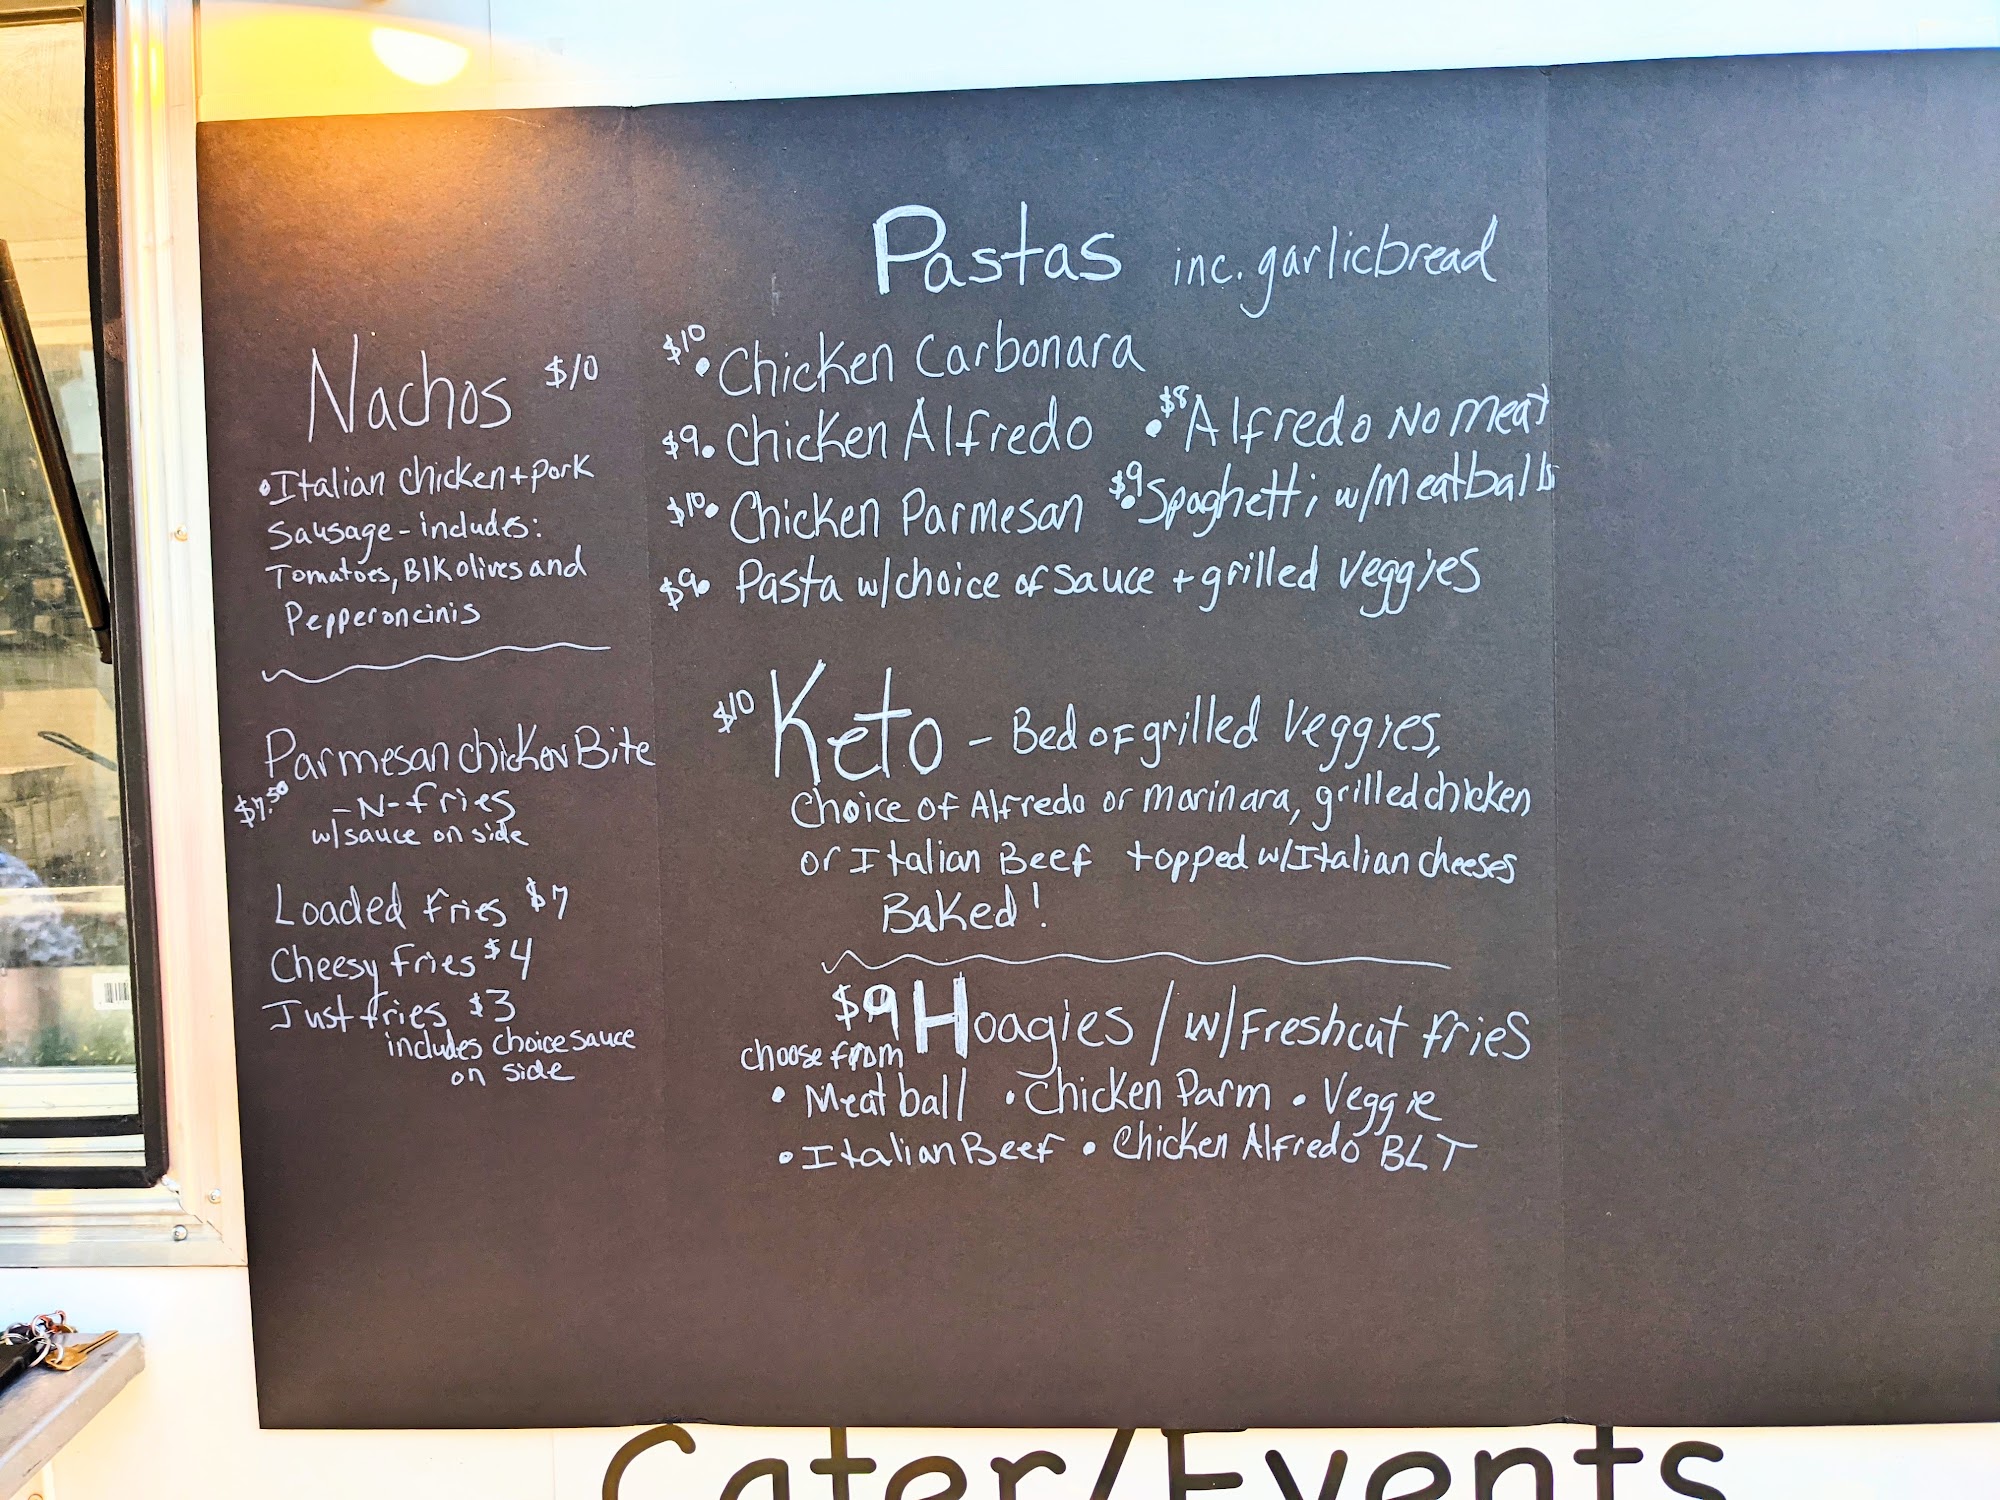 Nachos $10
• Italian chicken + pork
Sausage - includes:
Tomatoes, Blk olives and
Pepperoncinis
Parmesan chicken Bite
$7.50 -N- fries
w/sauce on side
Loaded fries $7
Cheesy fries $4
Just fries $3
includes choice sauce
on side
Pastas inc. garlicbread
$10 • Chicken Carbonara
$9 • Chicken Alfredo • $8 Alfredo No Meat
$10 • Chicken Parmesan • $9 Spaghetti w/Meatballs
$9 • Pasta w/choice of sauce + grilled veggies
$10 Keto - Bed of grilled Veggies,
Choice of Alfredo or marinara, grilled chicken
or Italian Beef topped w/Italian cheeses
Baked!
$9 Hoagies / w/Freshcut fries
choose from
• Meatball • Chicken Parm • Veggie
• Italian Beef • Chicken Alfredo BLT
Cater/Events